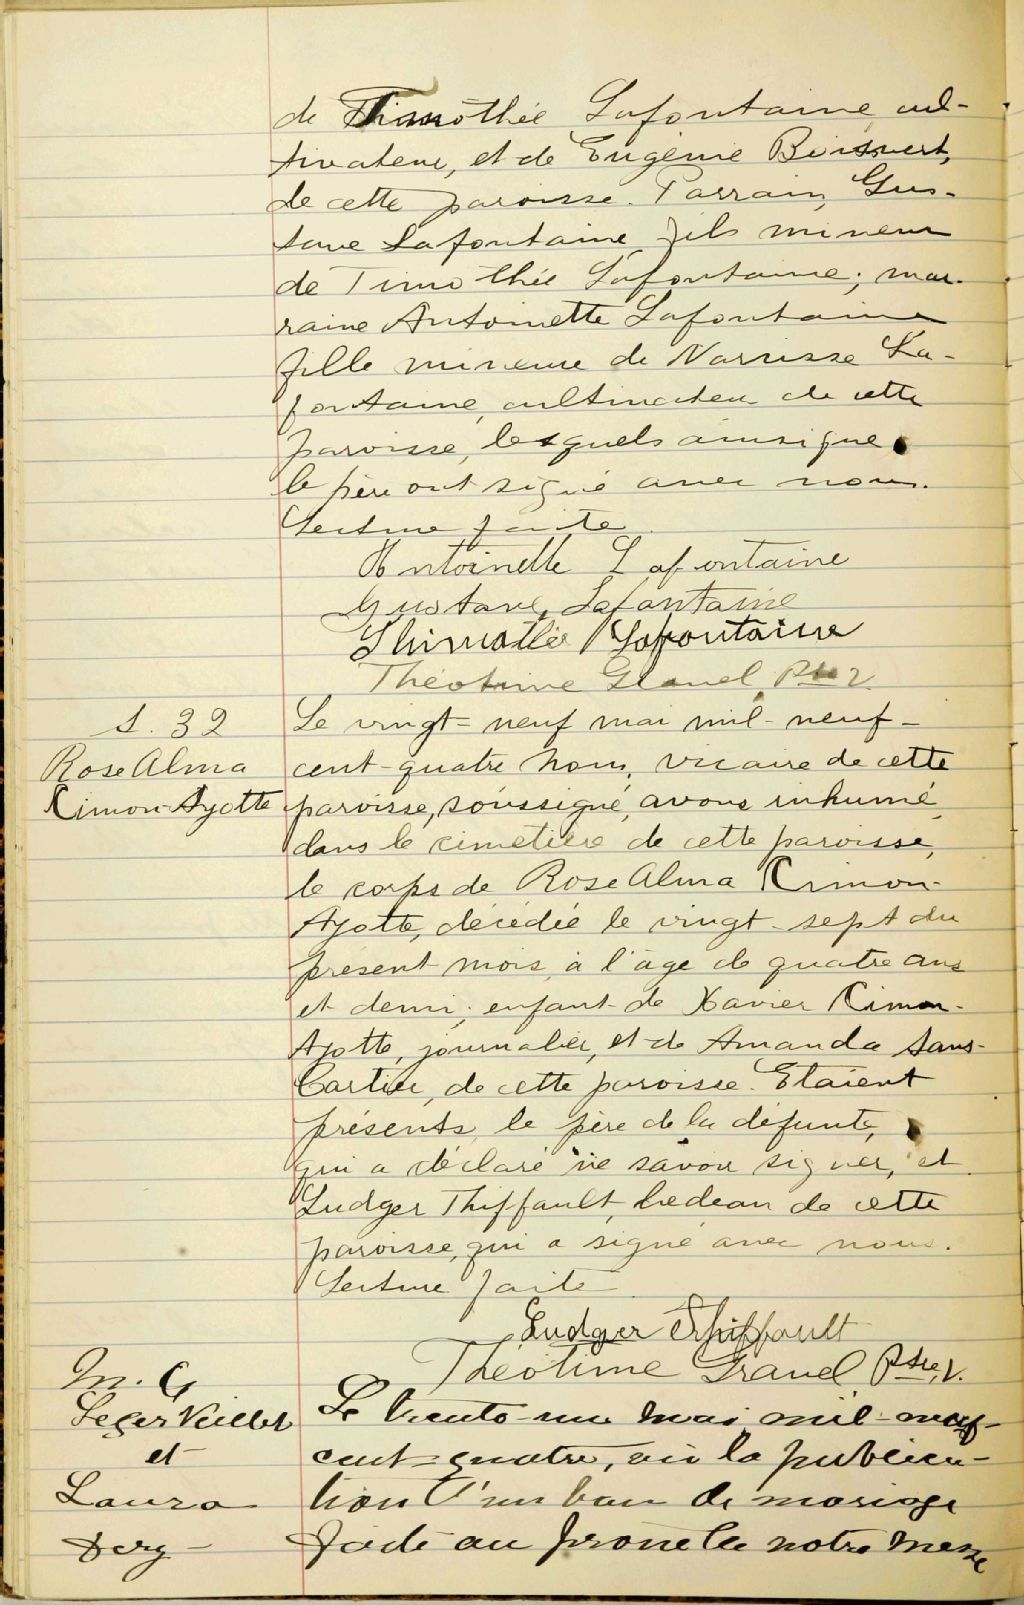 de Timothée Lafontaine, cul-
tivateur, et de Eugénie Boisvert,
de cette paroisse. Parrain, Gus-
tave Lafontaine, fils mineur
de Timothée Lafontaine; mar-
raine Antoinette Lafontaine
fille mineure de Narcisse La-
fontaine, cultivateur de cette
paroisse, lesquels ainsi que
le père ont signé avec nous.
Lecture faite.
Antoinette Lafontaine
Gustave Lafontaine
Thimothée Lafontaine
Théotime Gravel Ptre V.
S. 32
Rose Alma
Simon-Ayotte
Le vingt-neuf mai mil-neuf-
cent-quatre nous, vicaire de cette
paroisse, soussigné, avons inhumé,
dans le cimetière de cette paroisse,
le corps de Rose Alma Simon-
Ayotte, décédée le vingt-sept du
présent mois, à l'âge de quatre ans
et demi; enfant de Xavier Simon-
Ayotte, journalier, et de Amanda Sans-
Cartier, de cette paroisse. Etaient
présents, le père de la défunte,
qui a déclaré ne savoir signer, et
Ludger Thiffault, bedeau de cette
paroisse, qui a signé avec nous.
Lecture faite.
Ludger Thiffault
Théotime Gravel Ptre, V.
M. 9
et
Laura
Le trente-un mai mil-neuf-
cent-quatre, vu la publica-
tion d'un ban de mariage
faite au prône de notre messe